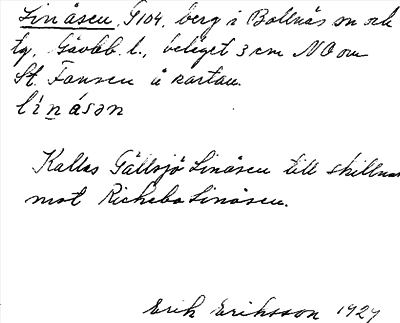 Linåsen, F104, berg i Bollnäs sn och
tg, Gävleb. l., beläget 3 cm NO om
St. Fansen å kartan.
línásən
Kallas Gällsjö Linåsen till skillnad
mot Richebo Linåsen.
Erik Eriksson 1927